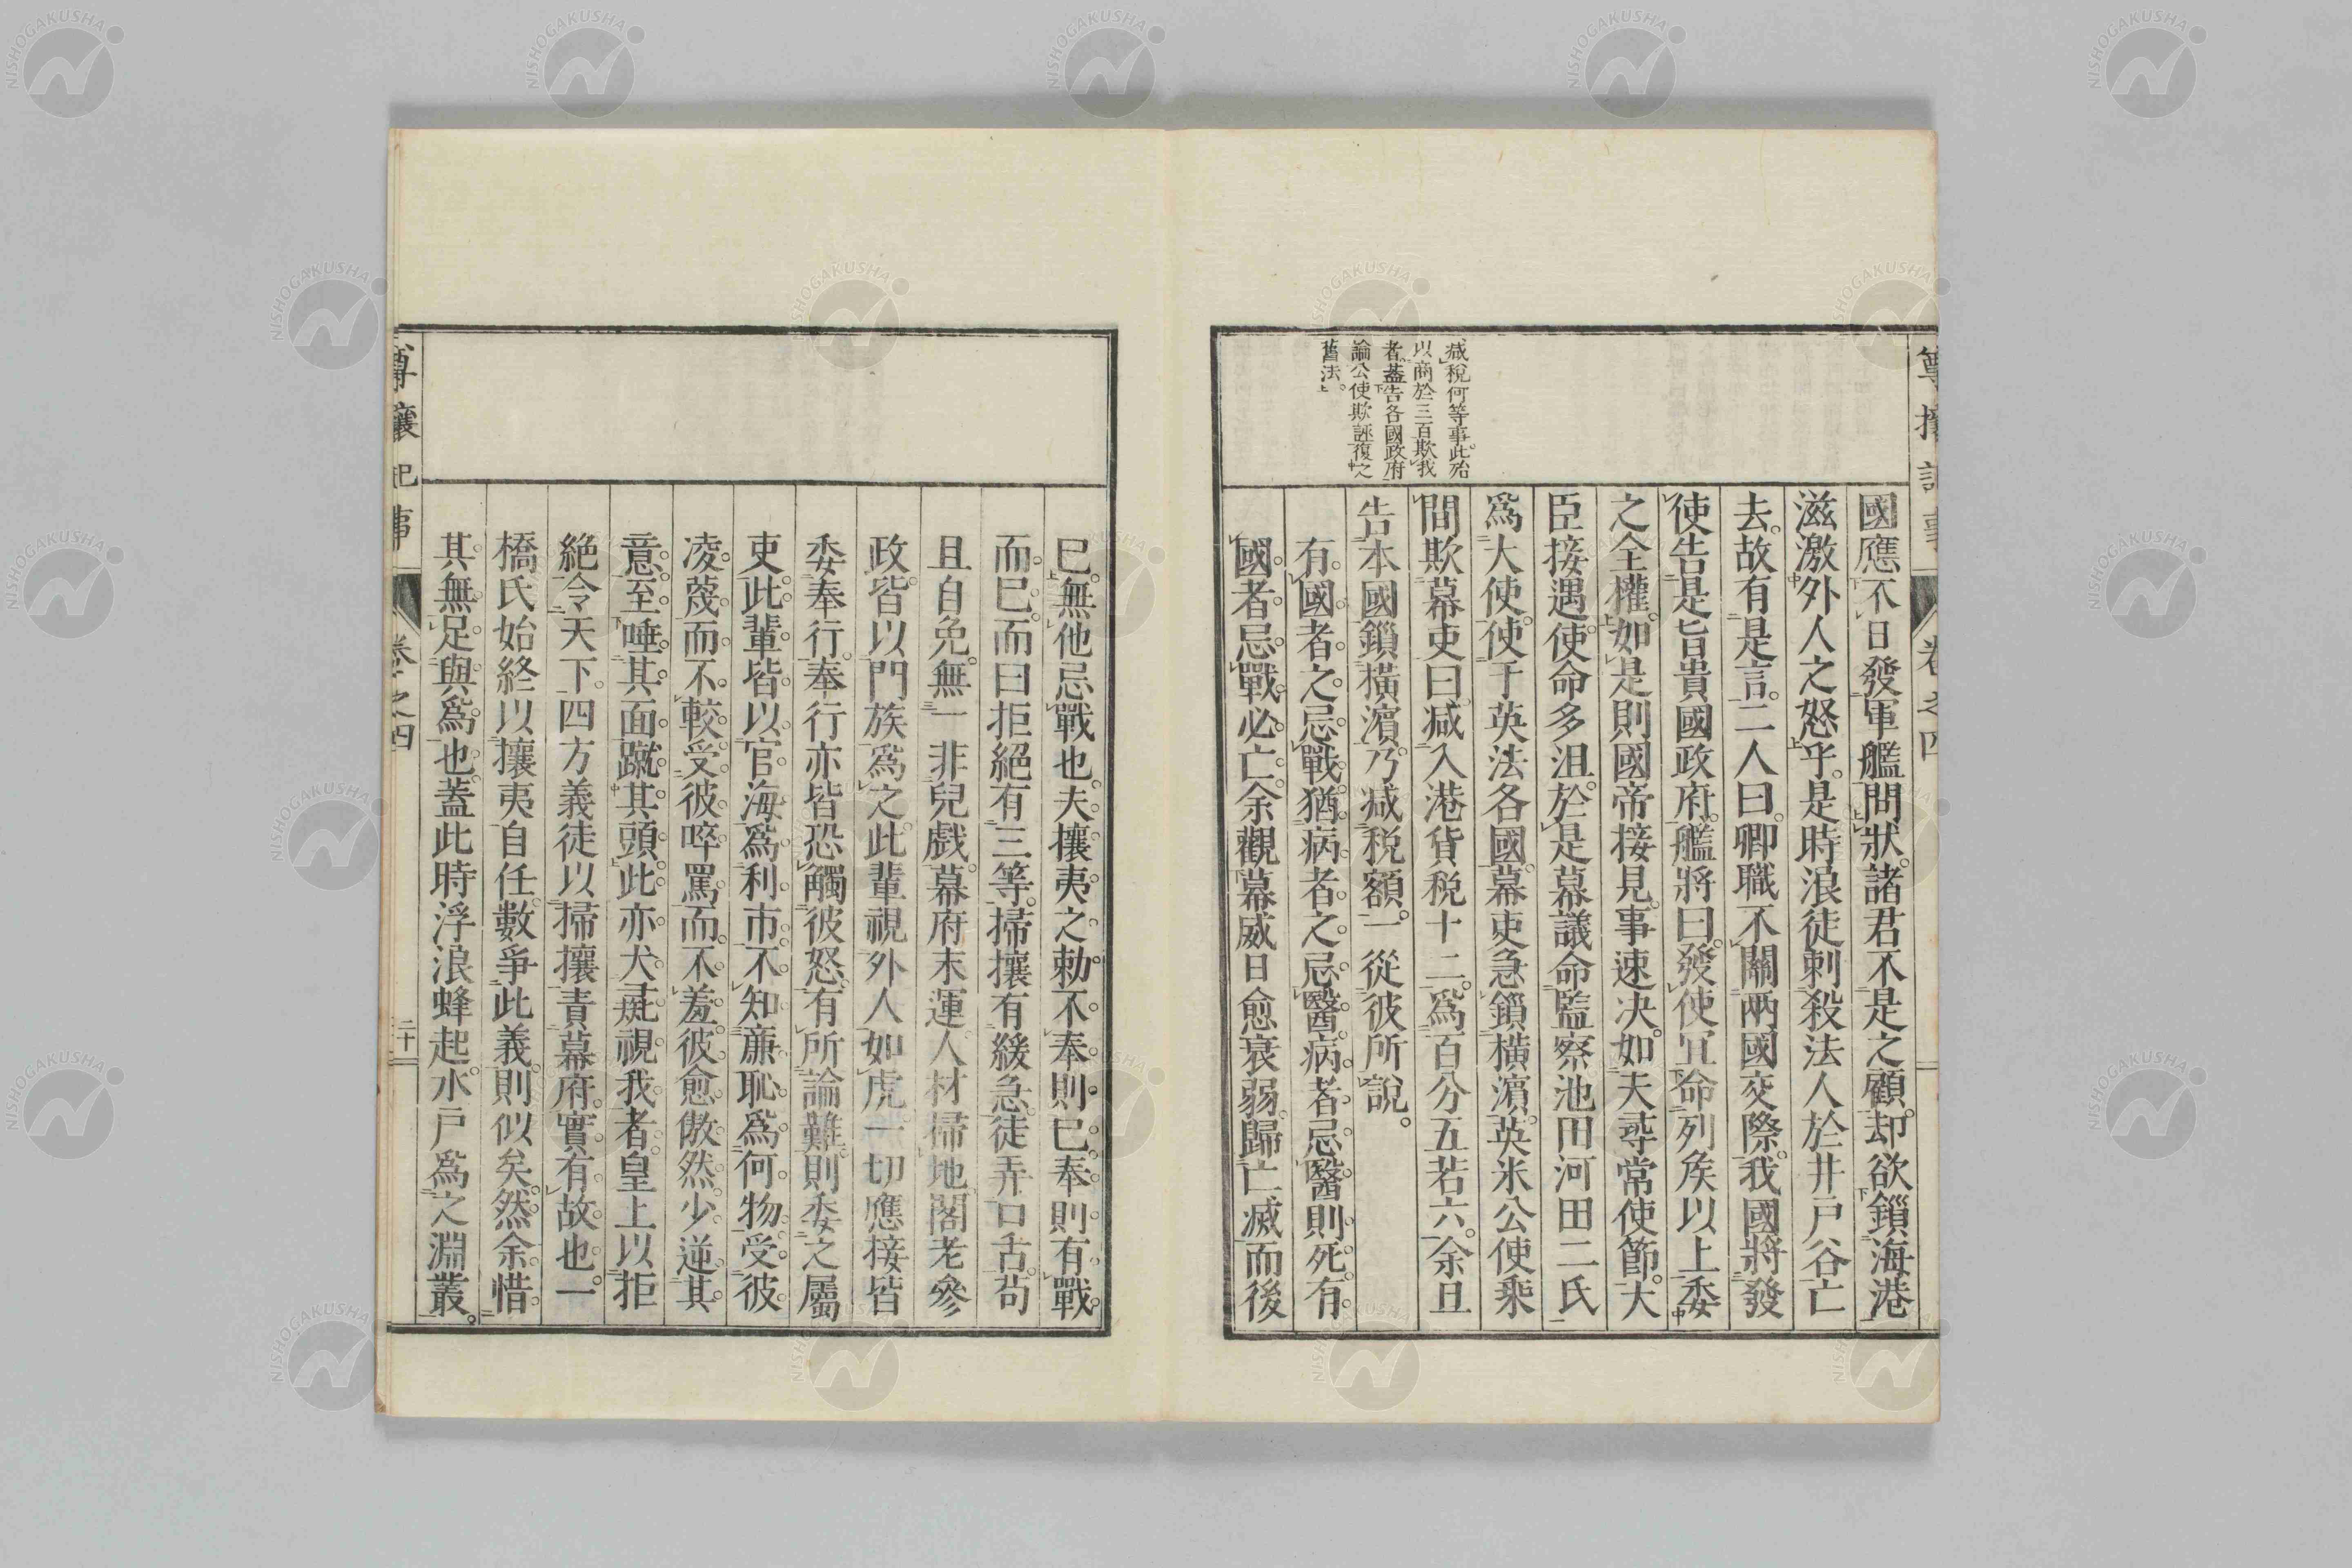 尊攘記事
卷之四
減稅何等事此殆
以商於三百欺我
者蓋告各國政府
論公使欺誣復之
舊法
國應不日發軍艦問狀諸君不是之顧却欲鎖海港
滋激外人之怒乎是時浪徒刺殺法人於井戶谷亡
去故有是言二人曰卿職不關兩國交際我國將發
使告是旨貴國政府艦將曰發使宜命列矦以上委
之全權如是則國帝接見事速决如夫尋常使節大
臣接遇使命多沮於是幕議命監察池田河田二氏
爲大使使于英法各國幕吏急鎖橫濵英米公使乘
間欺幕吏曰減入港貨稅十二爲百分五若六余且
告本國鎖橫濵乃減稅額一從彼所說
有國者之忌戰猶病者之忌醫病者忌醫則死有
國者忌戰必亡余觀幕威日愈衰弱歸亡滅而後
已無他忌戰也夫攘夷之勅不奉則已奉則有戰
而已而曰拒絕有三等掃攘有緩急徒弄口舌苟
且自免無一非兒戲幕府末運人材掃地閣老參
政皆以門族爲之此輩視外人如虎一切應接皆
委奉行奉行亦皆恐觸彼怒有所論難則委之屬
吏此輩皆以官海爲利市不知廉恥爲何物受彼
凌蔑而不較受彼啐罵而不羞彼愈傲然少逆其
意至唾其面蹴其頭此亦犬彘視我者皇上以拒
絕令天下四方義徒以掃攘責幕府實有故也一
橋氏始終以攘夷自任數爭此義則似矣然余惜
其無足與爲也蓋此時浮浪蜂起水戶爲之淵叢
尊攘記事
卷之四
二十
NISHOGAKUSHA